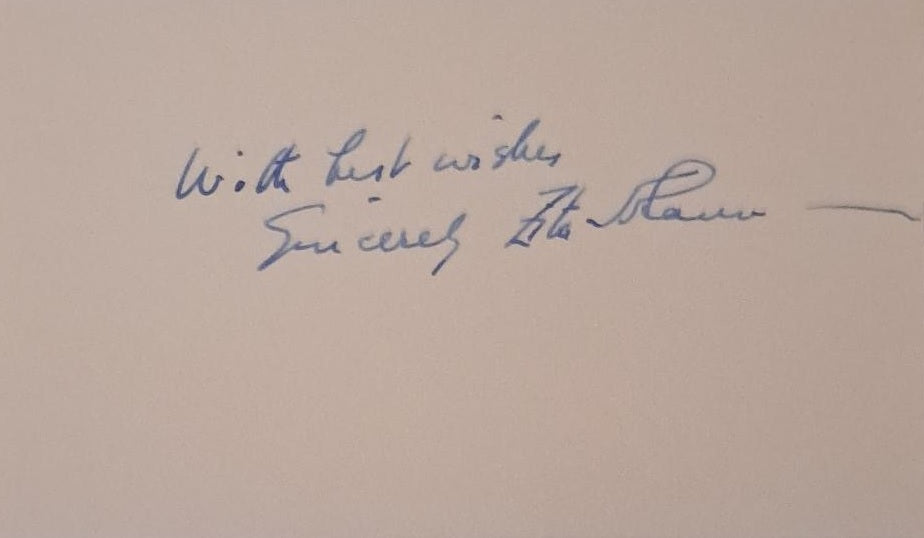 With best wishes
Sincerely Zita